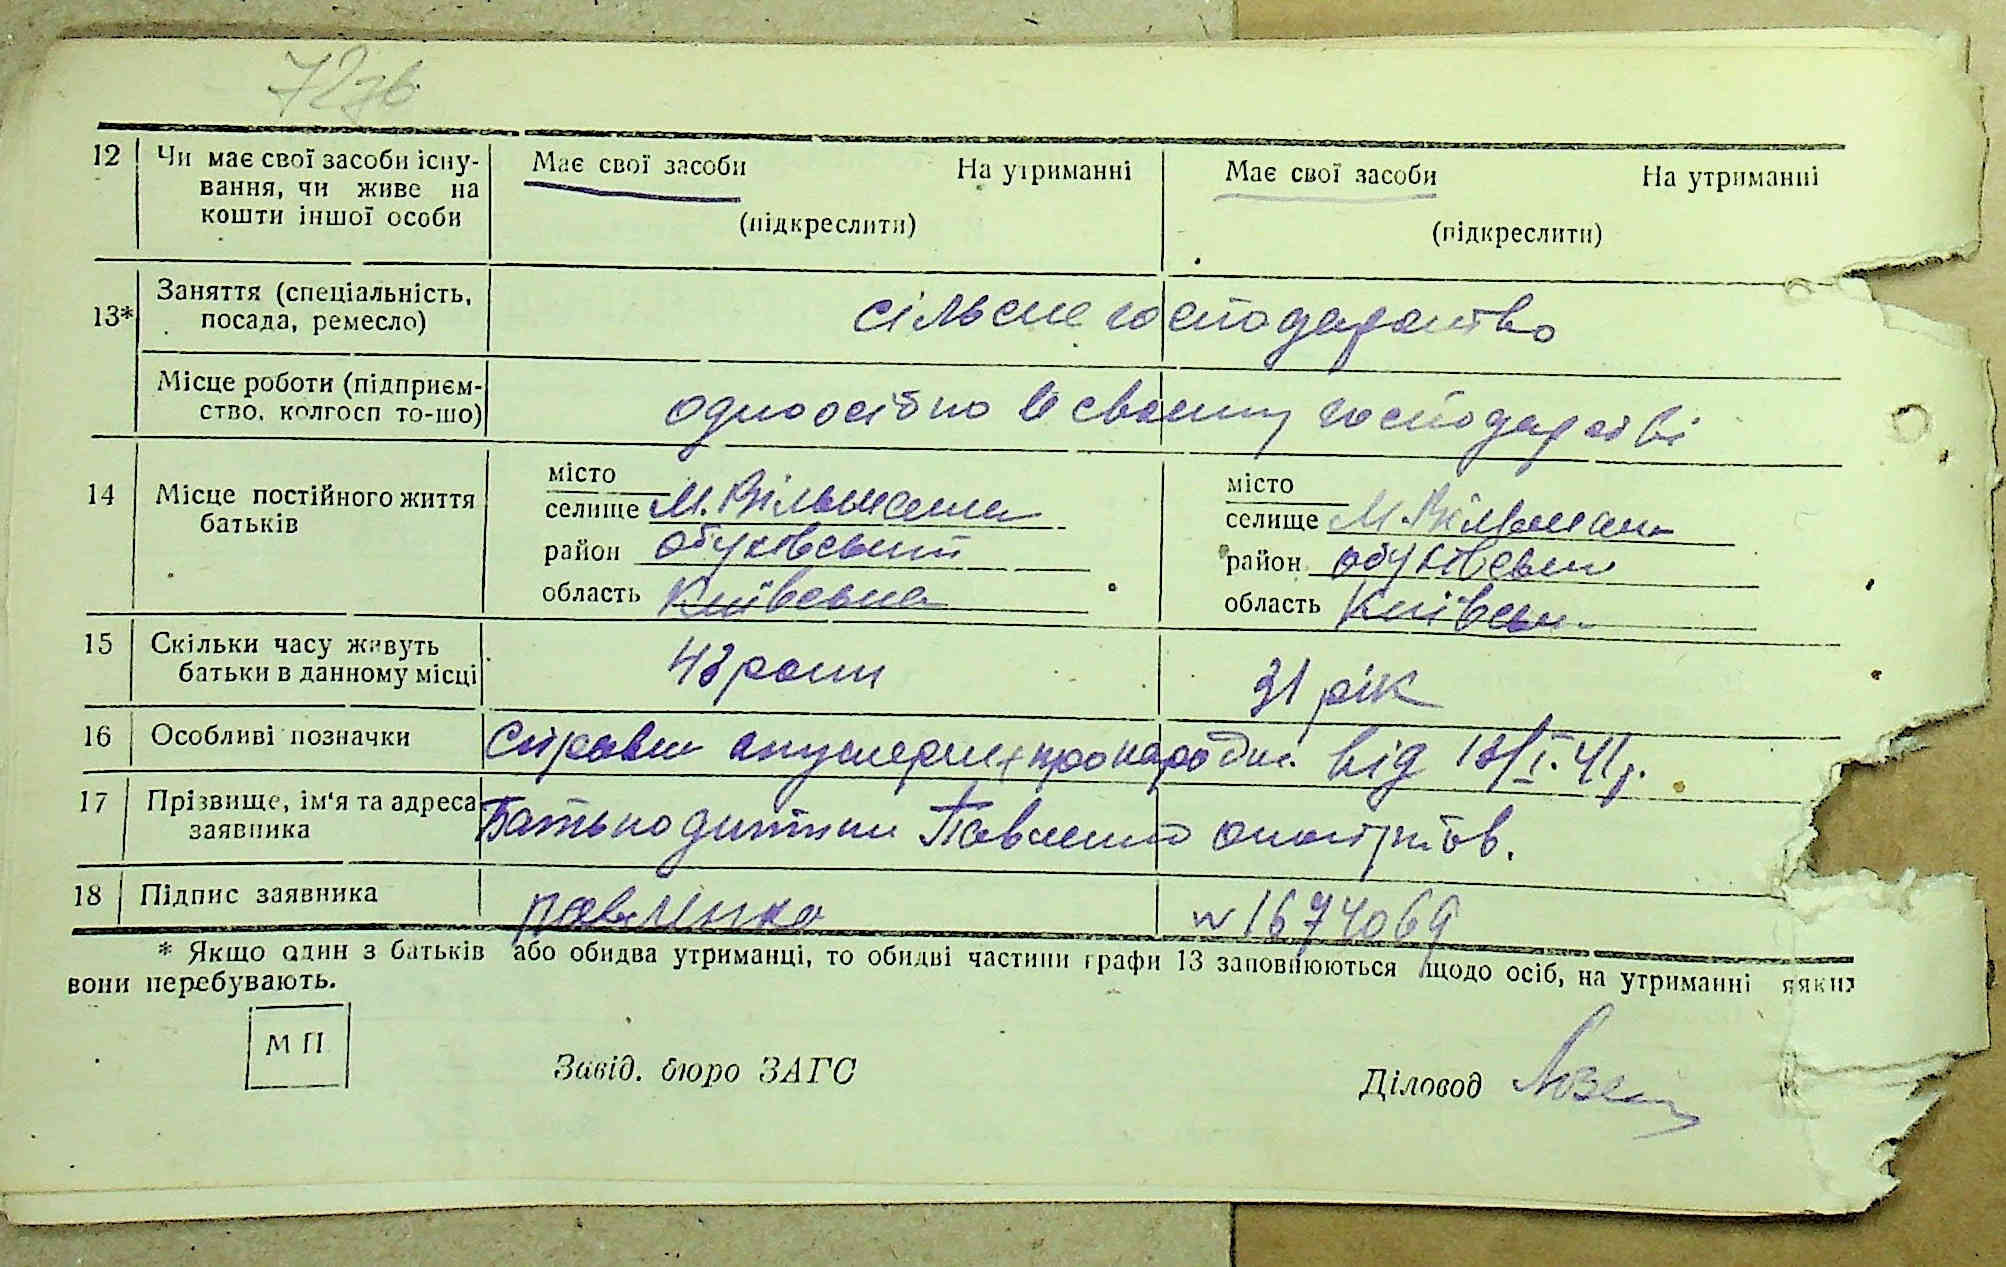 72зв
12 Чи має свої засоби існу-
вання, чи живе на
кошти іншої особи
Має свої засоби На утриманні
(підкреслити)
Має свої засоби На утриманні
(підкреслити)
13* Заняття (спеціальність,
посада, ремесло)
сільське господарство
Місце роботи (підприєм-
ство, колгосп то-що)
одноосібно в своєму господарстві
14 Місце постійного життя
батьків
місто
селище М. Вільшанка
район Обухівський
область Київська
місто
селище М. Вільшанка
район Обухівський
область Київськ
15 Скільки часу живуть
батьки в данному місці
43 роки
31 рік
16 Особливі позначки
Справка акушерки про народж. від 18/I.41р.
17 Прізвище, ім'я та адреса
заявника
Батько дитини Павленко
18 Підпис заявника
Павленко
№1674069
* Якщо один з батьків або обидва утриманці, то обидві частини графи 13 заповнюються щодо осіб, на утриманні яких
вони перебувають.
М П
Завід. бюро ЗАГС
Діловод